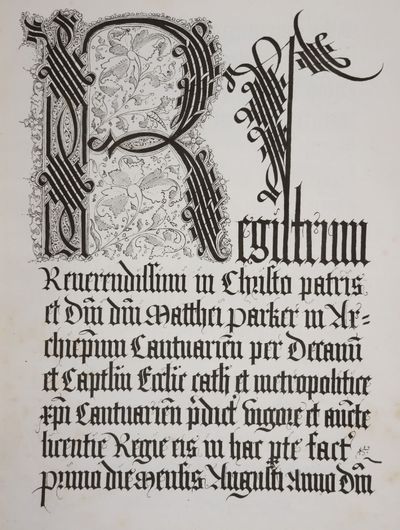 Registrum
Reuerendissimi in Christo patris
et Dñi dñi Matthei Parker in Ar=
chiepũm Cantuarieñ per Decanũ
et Captl̃m Ecclie cath et metropolitice
xp̃i Cantuarieñ p̃dict vigore et aucte
licentie Regie eis in hac p̃te fact
primo die Mensis Augusti Anno Dñi